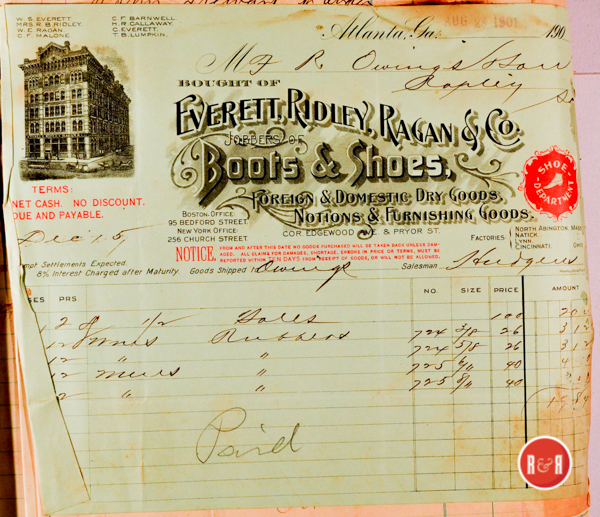 W. S. EVERETT. C. F. BARNWELL.
MRS. R. B. RIDLEY. H. R. CALLAWAY.
W. E. RAGAN. C. EVERETT.
C. F. MALONE. T. B. LUMPKIN.
Atlanta, Ga. AUG 24 1901 190
M F R Owings & Son
Rapley
BOUGHT OF
EVERETT, RIDLEY, RAGAN & CO.
JOBBERS OF
BOOTS & SHOES,
FOREIGN & DOMESTIC DRY GOODS.
NOTIONS & FURNISHING GOODS.
COR. EDGEWOOD AVE. & PRYOR ST.
SHOE DEPARTMENT
TERMS:
NET CASH. NO DISCOUNT.
DUE AND PAYABLE.
Dec 15
BOSTON OFFICE:
95 BEDFORD STREET.
NEW YORK OFFICE:
256 CHURCH STREET.
FACTORIES NORTH ABINGTON, MASS
NATICK,
LYNN,
CINCINNATI, OHIO
NOTICE. FROM AND AFTER THIS DATE NO GOODS PURCHASED WILL BE TAKEN BACK UNLESS DAM-
AGED. ALL CLAIMS FOR DAMAGES, SHORTAGE, ERRORS IN PRICE OR TERMS, MUST BE
REPORTED WITHIN TEN DAYS FROM RECEIPT OF GOODS, OR WILL NOT BE ALLOWED.
mpt Settlements Expected.
8% Interest Charged after Maturity. Goods Shipped to Owings Salesman Hudgens
GES PRS. NO. SIZE PRICE AMOUNT
2 1/2 100 20
Rubbers 724 3/8 26 3 12
12 " " 724 5/8 26 3 12
12 " 725 6/11 40 4
2 " " 725 8/11 40
19 84
Paid
R&R